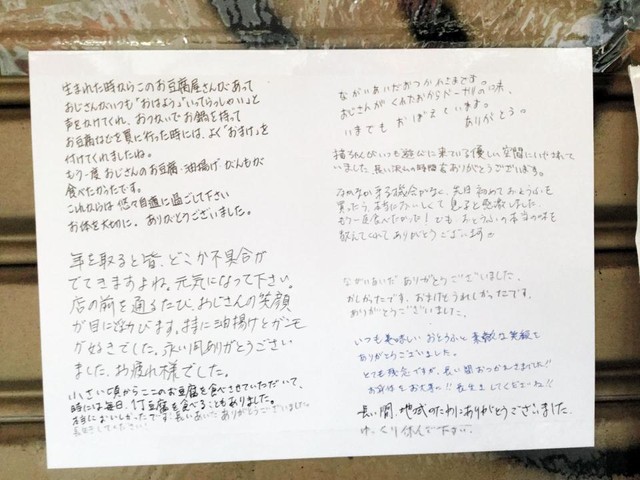 生まれた時からこのお豆腐屋さんがあって
おじさんがいつも「おはよう」「いってらっしゃい」と
声をかけてくれ、おつかいでお鍋を持って
お豆腐などを買に行った時には、よく「おまけ」を
付けてくれましたね。
もう一度おじさんのお豆腐・油揚げ・がんもが
食べたかったです。
これからは悠々自適に過ごして下さい
お体を大切に。ありがとうございました。
年を取ると皆、どこか不具合が
でてきますよね。元気になって下さい。
店の前を通るたび、おじさんの笑顔
が目に浮びます。特に油揚げとガンモ
が好きでした。永い間ありがとうござい
ました。お疲れ様でした。
小さい頃からここのお豆腐を食べさせていただいて、
時には毎日、1丁豆腐を食べることもありました。
本当においしかったです。長いあいだありがとうございました。
長生きしてください!
ながいあいだおつかれさまです。
おじさんが くれたおからドーナツの味、
いまでも おぼえています。
ありがとう。
猫ちゃんがいつも遊びに来ている優しい空間にいやされて
いました。長い沢山の時間をありがとうございます。
なかなか来る機会がなく、先日初めておとうふを
買ったら、本当においしくて息子と感激しました。
もう一度食べたかった!でも、おとうふの本当の味を
教えてくれてありがとうございます
ながいあいだ ありがとうございました。
おいしかったです、おまけもうれしかったです。
ありがとうございました。
いつも美味しいおとうふと素敵な笑顔を
ありがとうございました。
とても残念ですが、長い間おつかれさまでした!!
お身体をお大事に!!長生きしてくださいね!!
長い間、地域のためにありがとうございました。
ゆっくり休んで下さい。